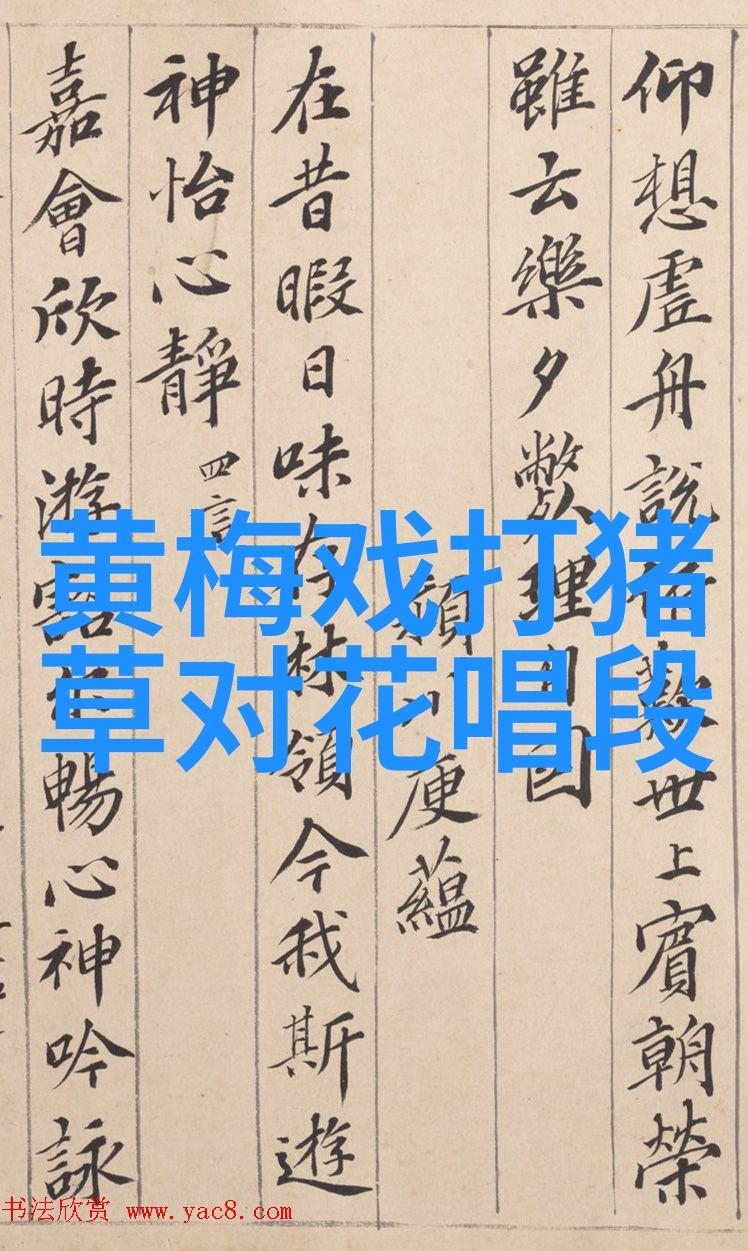 黄梅戏打猪
草对花唱段
仰想虛舟說俯歎世上賓朝榮
雖云樂夕理因
潁川庾蘊
在昔暇日味存林領今我斯遊
神怡心靜
四言
嘉會欣時游豁暢心神吟詠
书法欣赏 www.yac8.com